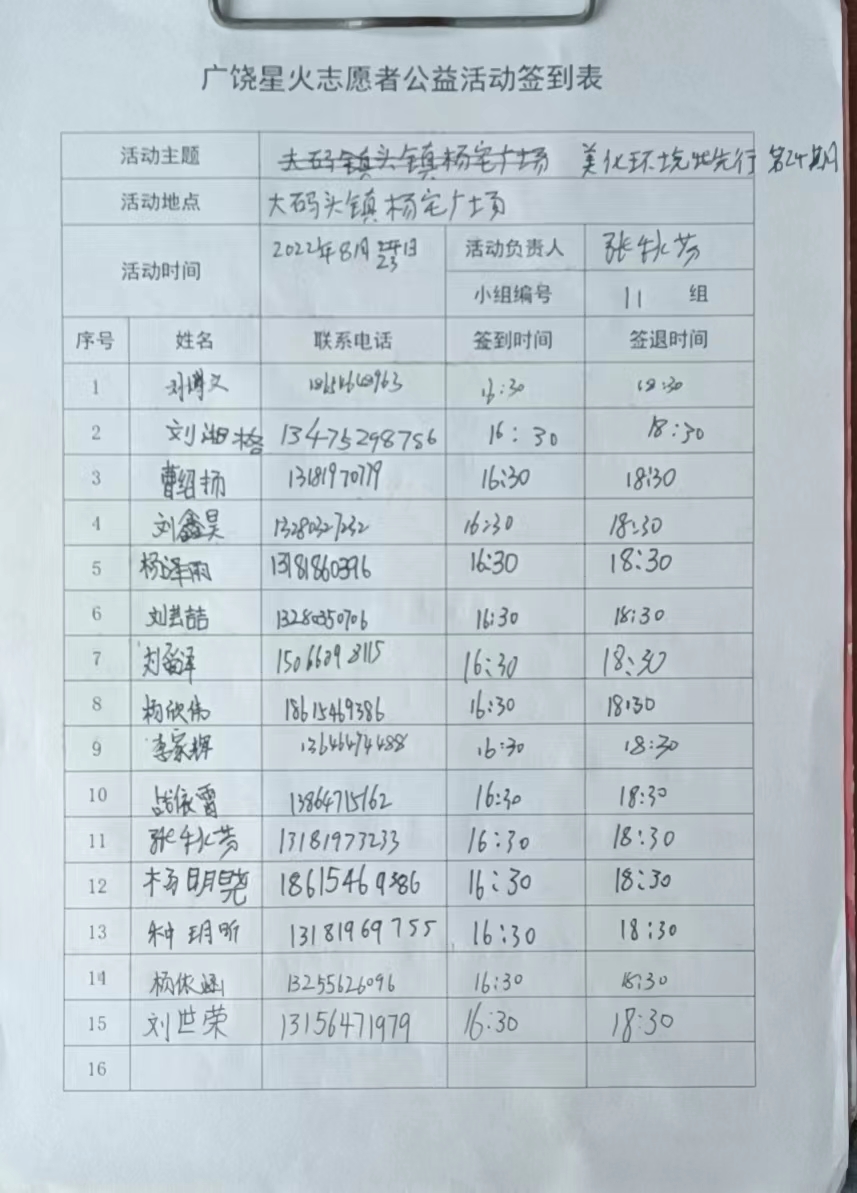 广饶星火志愿者公益活动签到表
活动主题 大码镇头镇杨宅广场 美化环境 先行 第24期
活动地点 大码头镇杨宅广场
活动时间 2022年8月23日 活动负责人 张秋芳
小组编号 11 组
序号 姓名 联系电话 签到时间 签退时间
1 刘博文 16:30 18:30
2 刘湘格 13475298756 16:30 18:30
3 曹绍扬 13181970779 16:30 18:30
4 刘鑫昊 13280327232 16:30 18:30
5 杨泽雨 13181860396 16:30 18:30
6 刘芸喆 13280350706 16:30 18:30
7 刘 泽 15066093115 16:30 18:30
8 杨欣伟 18615469386 16:30 18:30
9 李家辉 13646474488 16:30 18:30
10 依雪 13864715162 16:30 18:30
11 张秋芳 13181973233 16:30 18:30
12 杨明晓 18615469386 16:30 18:30
13 种玥昕 13181969755 16:30 18:30
14 杨依涵 13255626096 16:30 18:30
15 刘世荣 13156471979 16:30 18:30
16